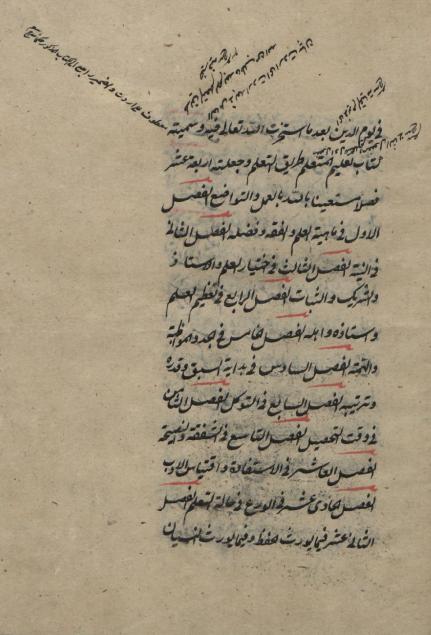 في يوم الدين بعد ما استخرت الله تعالى فيه وسميته
كتاب تعليم المتعلم طريق التعلم وجعلته اربعة عشر
فصلا مستعينا بالله بالعمل والتواضع الفصل
الاول في ماهية العلم والفقه وفضله الفصل الثاني
في النية الفصل الثالث في اختيار العلم والاستاذ
والشريك والثبات الفصل الرابع في تعظيم العلم
واستاذه واهله الفصل الخامس في الجد والمواظبة
والهمة الفصل السادس في بداية السبق وقدره
وترتيبه الفصل السابع في التوكل الفصل الثامن
في وقت التحصيل الفصل التاسع في الشفقة والنصيحة
الفصل العاشر في الاستفادة واقتباس الادب
الفصل الحادي عشر في الورع في حالة التعلم الفصل
الثاني عشر فيما يورث الحفظ وفيما يورث النسيان